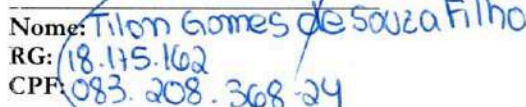 Nome: Tilon Gomes de Souza Filho
RG: 18.175.162
CPF: 083.208.368-24